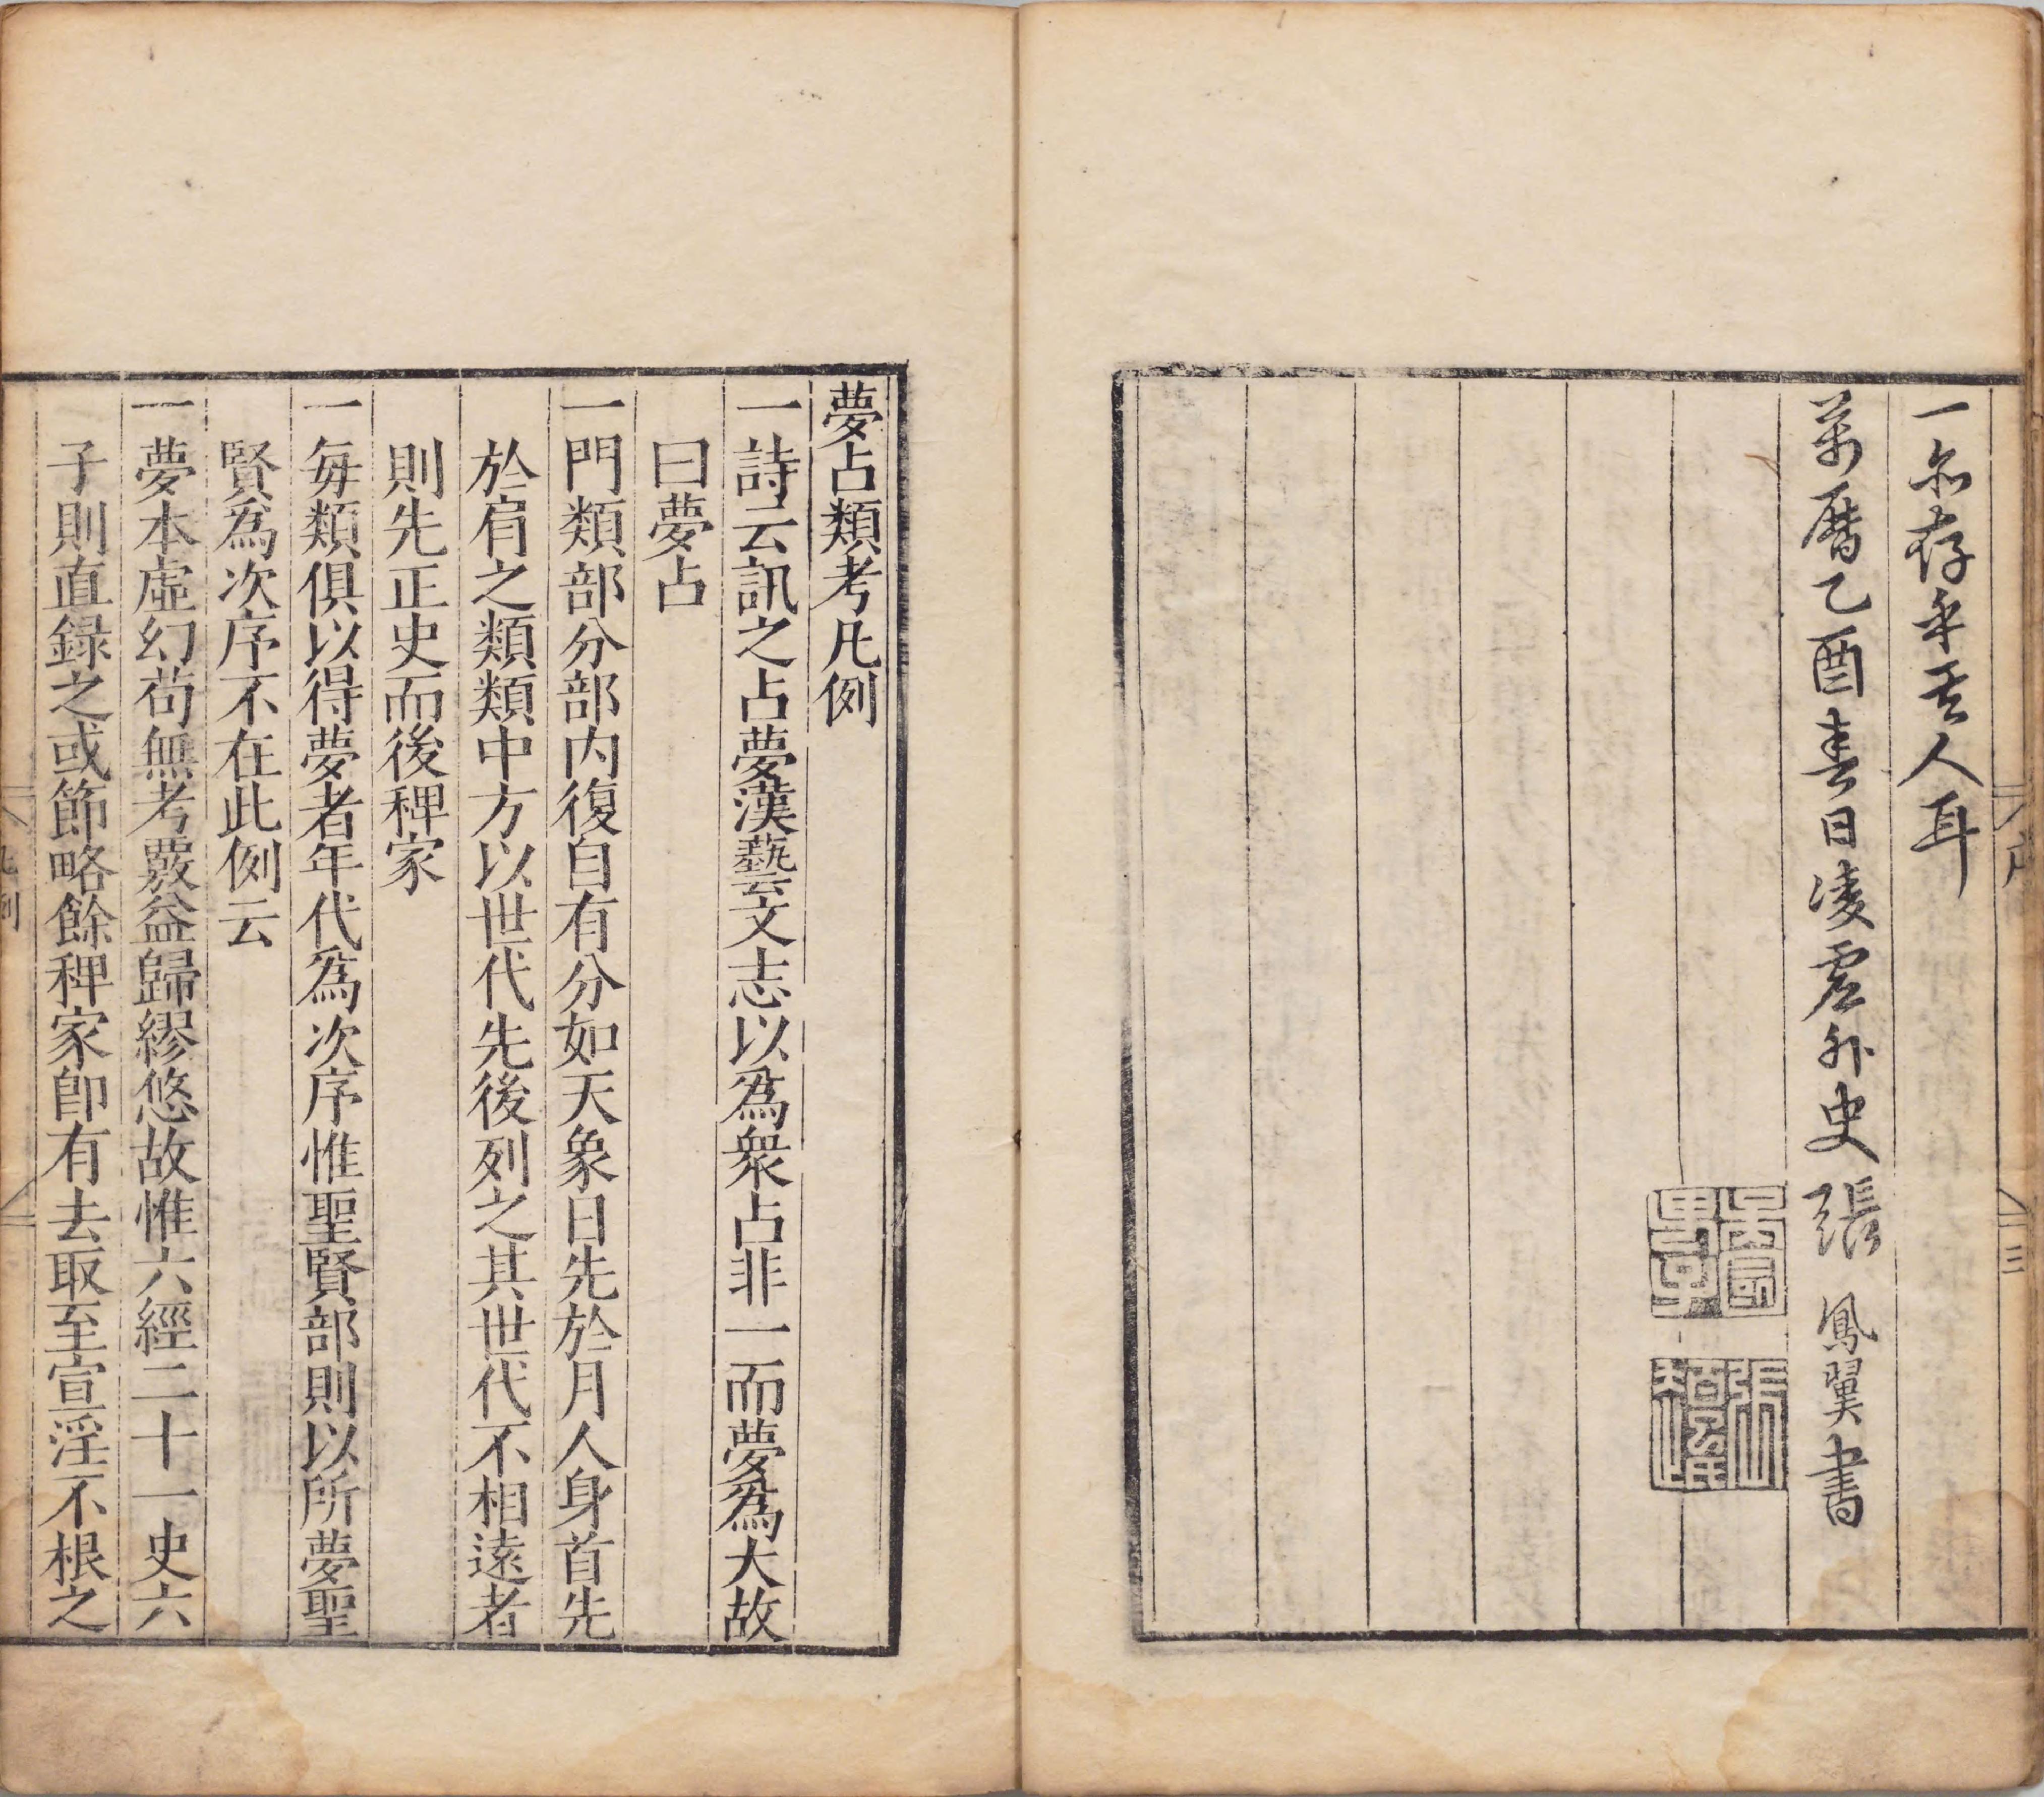 一亦存乎其人耳
萬曆乙酉春日凌虛外史張鳳翼書
序
三
夢占類考凡例
一詩云訊之占夢漢藝文志以爲衆占非一而夢爲大故
曰夢占
一門類部分部内復自有分如天象日先於月人身首先
於肩之類類中方以世代先後列之其世代不相遠者
則先正史而後稗家
一每類俱以得夢者年代爲次序惟聖賢部則以所夢聖
賢爲次序不在此例云
一夢本虛幻苟無考覈益歸繆悠故惟六經二十一史六
子則直録之或節略餘稗家卽有去取至宣淫不根之
凡例